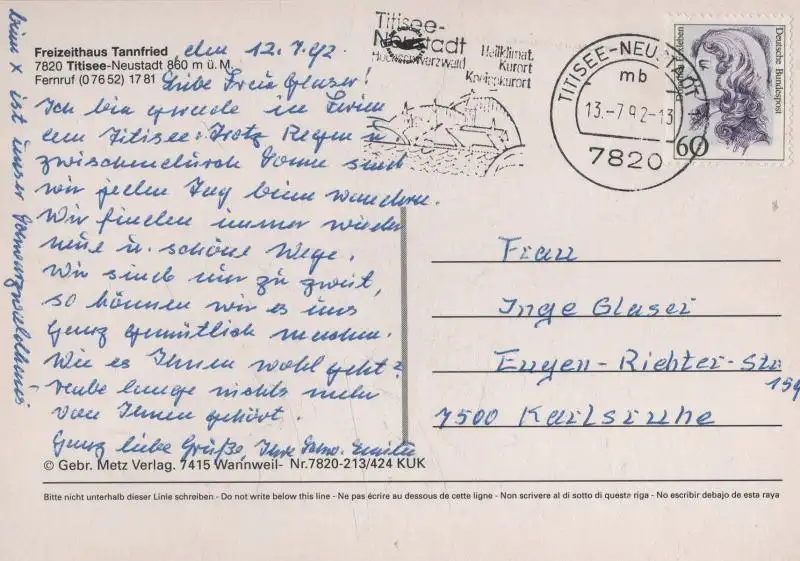 Freizeithaus Tannfried
7820 Titisee-Neustadt 860 m ü. M.
Fernruf (0 76 52) 17 81
den 12.7.92.
Liebe Frau Glaser!
Ich bin gerade in
dem Titisee. Trotz Regen u
zwischendurch Sonne sind
wir jeden Tag beim wandern.
Wir finden immer wieder
neue u. schöne Wege.
Wir sind nur zu zweit,
so können wir es uns
ganz gemütlich machen.
Wie es Ihnen wohl geht?
habe lange nichts mehr
von Ihnen gehört.
Ganz liebe Grüße, Ihre Schw. Emilie
beim x ist unser Schwarzwaldhaus
Titisee-
Neustadt
Hochschwarzwald
Heilklimat.
Kurort
Kneippkurort
TITISEE-NEUSTADT 1
mb
13.-7.92-13
7820
Deutsche Bundespost
60
Frau
Inge Glaser
Eugen-Richter-Str
159
7500 Karlsruhe
© Gebr. Metz Verlag. 7415 Wannweil- Nr.7820-213/424 KUK
Bitte nicht unterhalb dieser Linie schreiben - Do not write below this line - Ne pas écrire au dessous de cette ligne - Non scrivere al di sotto di questa riga - No escribir debajo de esta raya